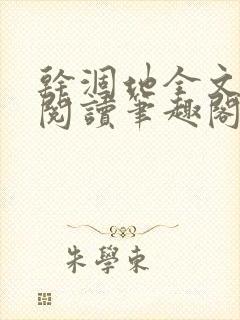 幹涸地全文
閱讀筆趣閣
朱學東